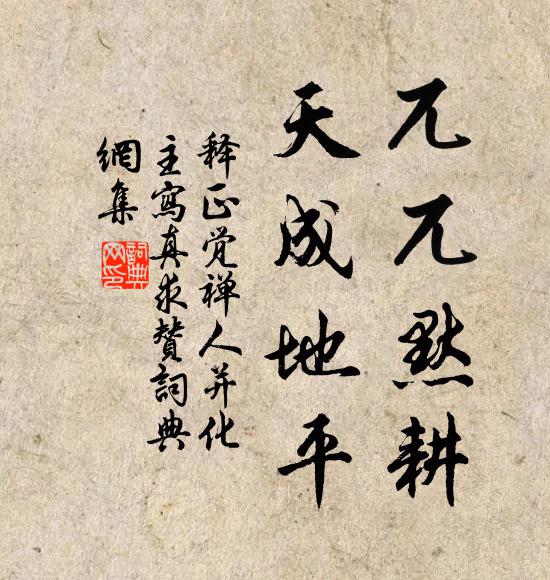 兀兀默耕
天成地平
释正觉禅人并化
主寫真求赞詞典
網集
詞典网印